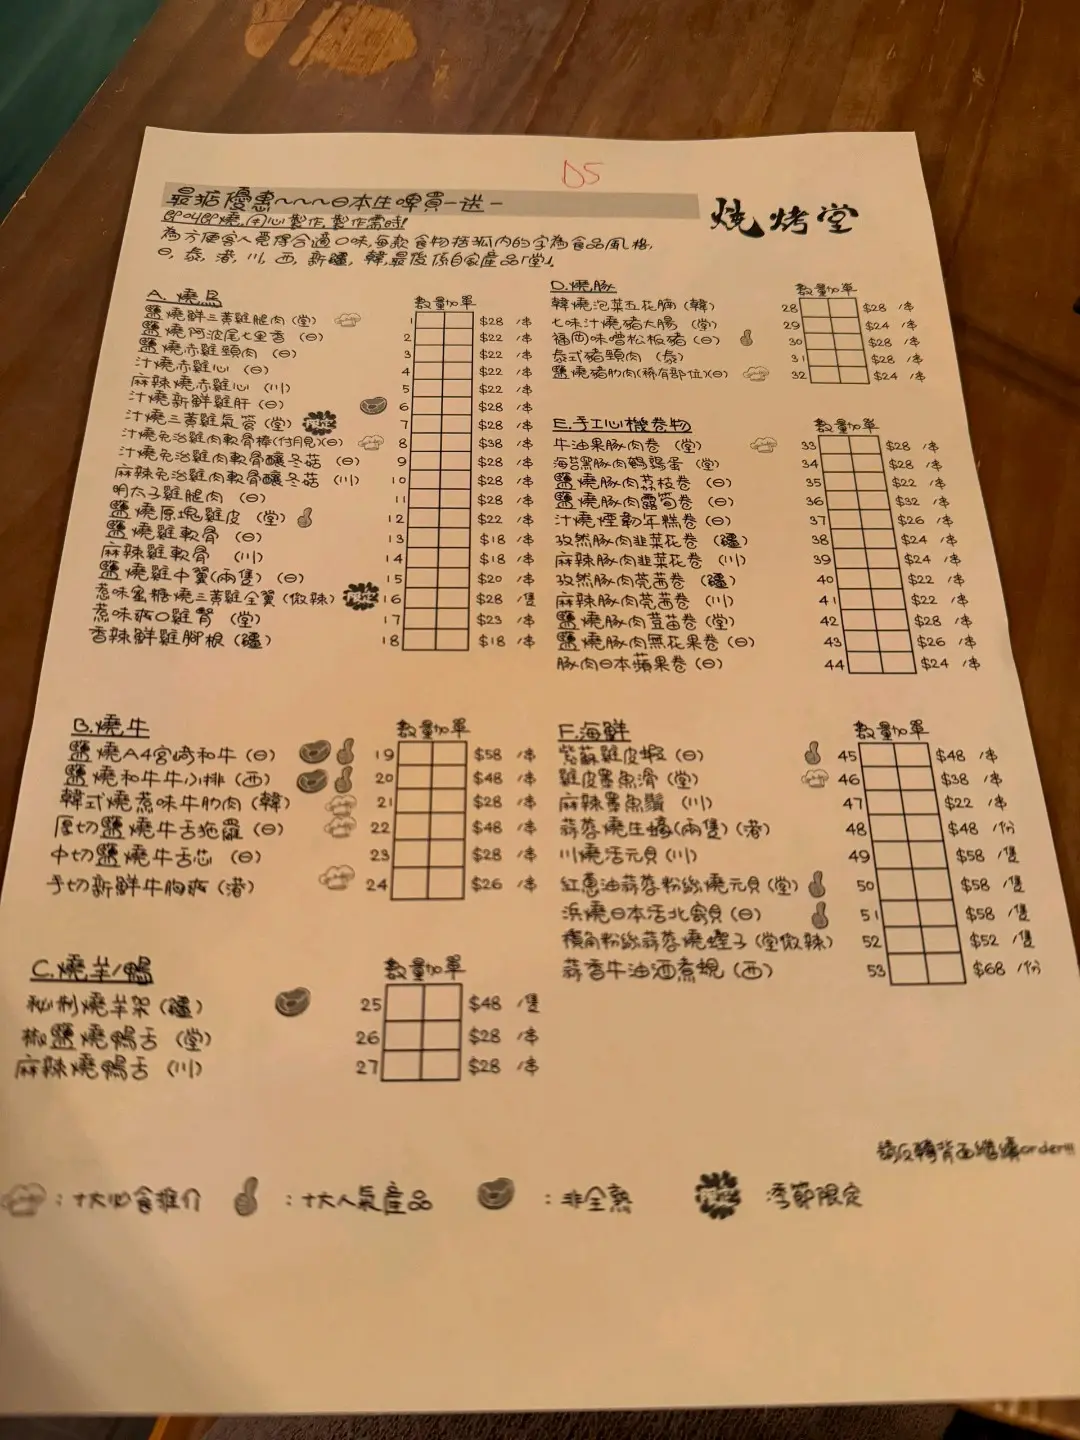 D5
最抵優惠~~~日本生啤買一送一
燒烤堂
即叫即燒,用心製作,製作需時!
為方便客人覓得合適口味,每款食物括弧內的字為食品風格,
日, 泰, 港, 川, 西, 新疆, 韓,最後係自家產品「堂」.
A. 燒鳥 數量 加單
鹽燒鮮三黃雞腿肉 (堂) 1 $28 /串
鹽燒阿波尾七里香 (日) 2 $22 /串
鹽燒赤雞頸肉 (日) 3 $22 /串
汁燒赤雞心 (日) 4 $22 /串
麻辣燒赤雞心 (川) 5 $22 /串
汁燒新鮮雞肝 (日) 6 $28 /串
汁燒三黃雞氣管 (堂) 限定 7 $28 /串
汁燒免治雞肉軟骨棒(付月見)(日) 8 $38 /串
汁燒免治雞肉軟骨釀冬菇 (日) 9 $28 /串
麻辣免治雞肉軟骨釀冬菇 (川) 10 $28 /串
明太子雞腿肉 (日) 11 $28 /串
鹽燒原塊雞皮 (堂) 12 $22 /串
鹽燒雞軟骨 (日) 13 $18 /串
麻辣雞軟骨 (川) 14 $18 /串
鹽燒雞中翼(兩隻) (日) 15 $20 /串
惹味蜜糖燒三黃雞全翼 (微辣) 限定 16 $28 /隻
惹味爽口雞腎 (堂) 17 $23 /串
香辣鮮雞腳根 (疆) 18 $18 /串
B. 燒牛 數量 加單
鹽燒A4宮崎和牛 (日) 19 $58 /串
鹽燒和牛牛小排 (西) 20 $48 /串
韓式燒惹味牛肋肉 (韓) 21 $28 /串
厚切鹽燒牛舌拖羅 (日) 22 $48 /串
中切鹽燒牛舌芯 (日) 23 $28 /串
手切新鮮牛胸爽 (港) 24 $26 /串
C. 燒羊/鴨 數量 加單
秘制燒羊架 (疆) 25 $48 /隻
椒鹽燒鴨舌 (堂) 26 $28 /串
麻辣燒鴨舌 (川) 27 $28 /串
D. 燒豚 數量 加單
韓燒泡菜五花腩 (韓) 28 $28 /串
七味汁燒豬大腸 (堂) 29 $24 /串
福岡味噌松板豬 (日) 30 $28 /串
泰式豬頸肉 (泰) 31 $28 /串
鹽燒豬肋肉(稀有部位)(日) 32 $24 /串
E. 手工心機卷物 數量 加單
牛油果豚肉卷 (堂) 33 $28 /串
海苔黑豚肉鵪鶉蛋 (堂) 34 $28 /串
鹽燒豚肉荔枝卷 (日) 35 $22 /串
鹽燒豚肉露筍卷 (日) 36 $32 /串
汁燒煙韌年糕卷 (日) 37 $26 /串
孜然豚肉韭菜花卷 (疆) 38 $24 /串
麻辣豚肉韭菜花卷 (川) 39 $24 /串
孜然豚肉芫茜卷 (疆) 40 $22 /串
麻辣豚肉芫茜卷 (川) 41 $22 /串
鹽燒豚肉荳苗卷 (堂) 42 $28 /串
鹽燒豚肉無花果卷 (日) 43 $26 /串
豚肉日本蘋果卷 (日) 44 $24 /串
F. 海鮮 數量 加單
紫蘇雞皮蝦 (日) 45 $48 /串
雞皮墨魚滑 (堂) 46 $38 /串
麻辣墨魚鬚 (川) 47 $22 /串
蒜蓉燒生蠔(兩隻) (港) 48 $48 /份
川燒活元貝 (川) 49 $58 /隻
紅蔥油蒜蓉粉絲燒元貝 (堂) 50 $58 /隻
浜燒日本活北寄貝 (日) 51 $58 /隻
橫角粉絲蒜蓉燒蟶子 (堂微辣) 52 $52 /隻
蒜香牛油酒煮蜆 (西) 53 $68 /份
請反轉背面繼續order!!!
: 十大必食推介
: 十大人氣產品
: 非全熟
限定 季節限定